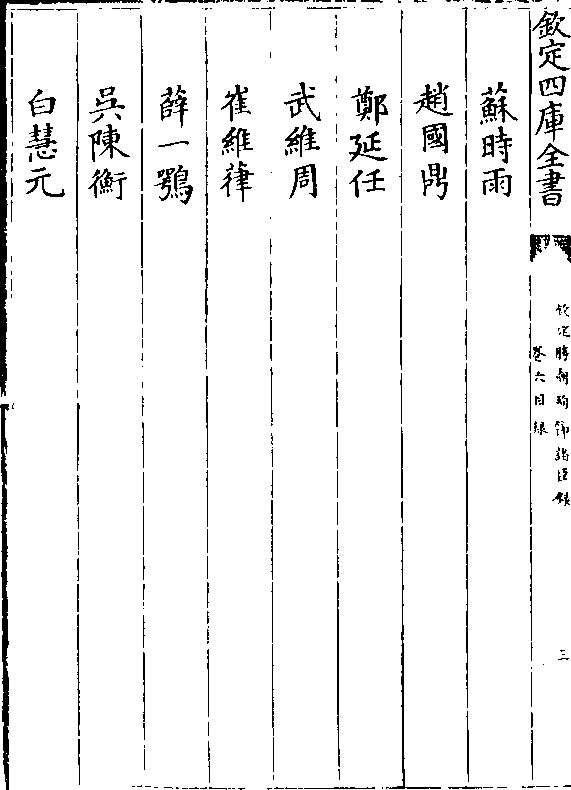 欽定四庫全書
欽定勝朝殉節諸臣録
卷六目録
三
蘇時雨
趙國鼎
鄭延任
武維周
崔維葎
薛一鶚
吳陳衡
白慧元